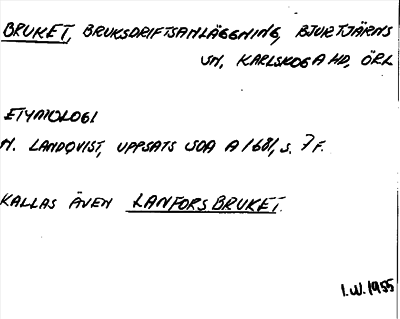 BRUKET, BRUKSDRIFTSANLÄGGNING, BJURTJÄRNS
SN, KARLSKOGA HD, ÖRL
ETYMOLOGI
N. LANDQVIST, UPPSATS SOA A 1681, S. 7 F.
KALLAS ÄVEN LANFORSBRUKET.
I.W. 1955